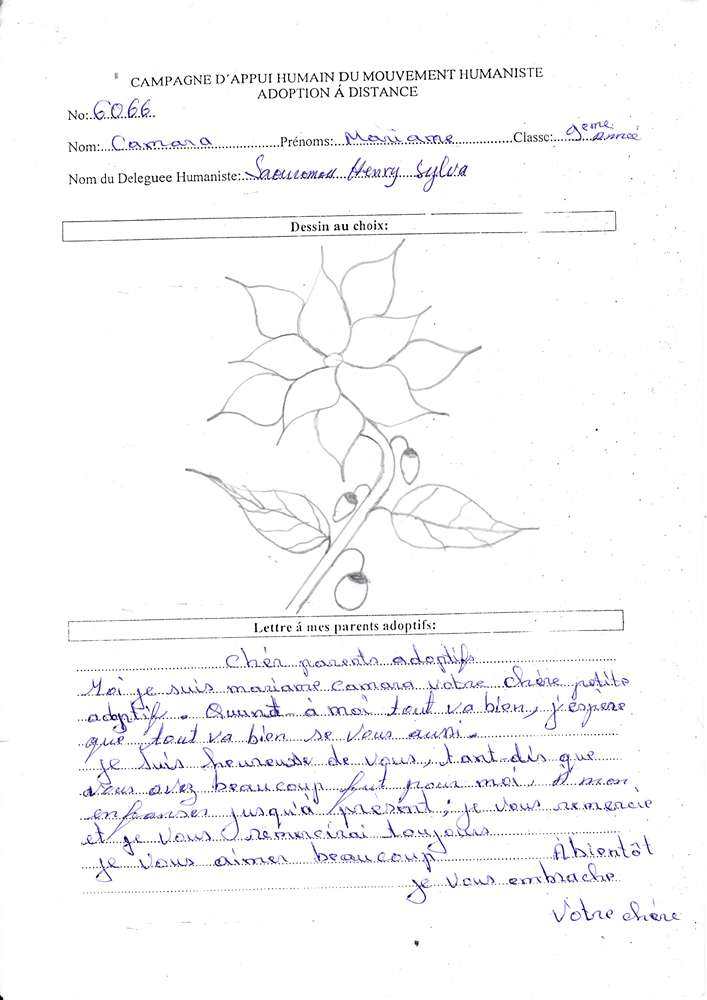 CAMPAGNE D'APPUI HUMAIN DU MOUVEMENT HUMANISTE
ADOPTION Á DISTANCE
No: 6066
Nom: Camara Prénoms: Mariame Classe: 9eme Année
Nom du Deleguee Humaniste: Henry Sylva
Dessin au choix:
Lettre á mes parents adoptifs:
Chér parents adoptifs
Moi je suis mariame camara votre chère petite
adoptif. Quand à moi tout va bien, j'éspère
que tout va bien se vous aussi.
je suis heureuse de vous, tant dis que
vous avez beaucoup fait pour moi, à mon
enfanser jusqu'à présent; je vous remercie
et je vous remercirai toujours
je vous aimer beaucoup Àbientôt
je vous embrache
Votre chére